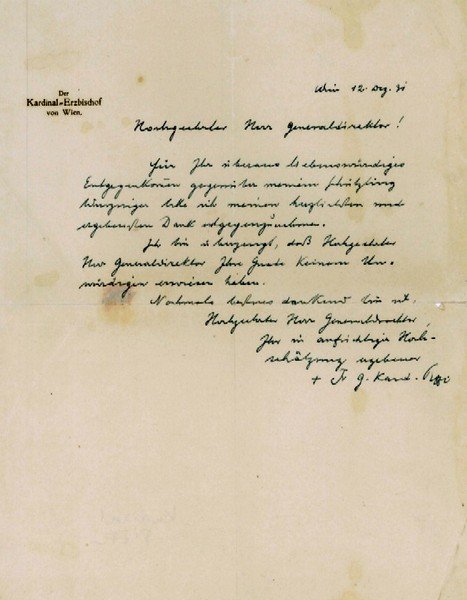 Der
Kardinal-Erzbischof
von Wien.
Wien 12. Dez. 31
Hochgeehrter Herr Generaldirektor!
Für Ihr überaus liebenswürdiges
Entgegenkommen gegenüber meinem Schützling
bitte ich meinen herzlichsten und
ergebensten Dank entgegenzunehmen.
Ich bin überzeugt, daß Hochgeehrter
Herr Generaldirektor Ihre Gnade keinem Un-
würdigen erwiesen haben.
Nochmals bestens dankend bin ich,
Hochgeehrter Herr Generaldirektor,
Ihr in aufrichtiger Hoch-
schätzung ergebener
+ Fr. G. Kard. Piffl